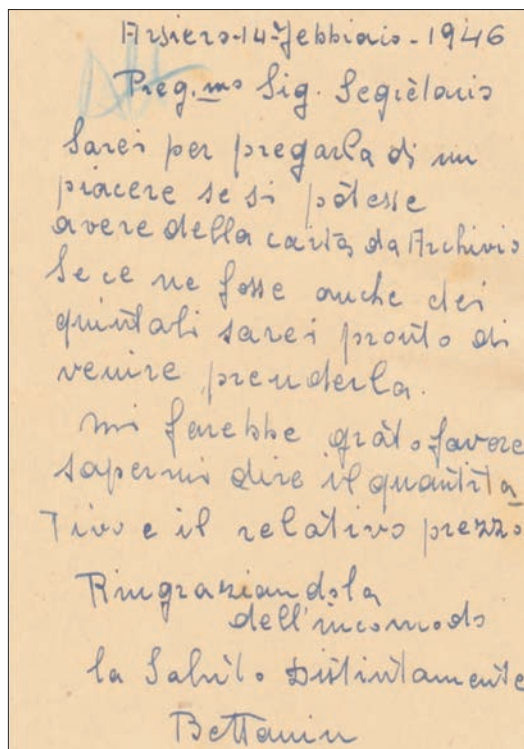 Arsiero-14-febbraio-1946
Preg.mo Sig. Segrètario
Sarei per pregarla di un
piacere se si potesse
avere della carta da Archivio
Se ce ne fosse anche dei
quintali sarei pronto di
venire prenderla.
mi farebbe grato favore
sapermi dire il quantita
Tivo e il relativo prezzo
Ringraziandola
dell'incomodo
la Saluto Distintamente
Bettanin